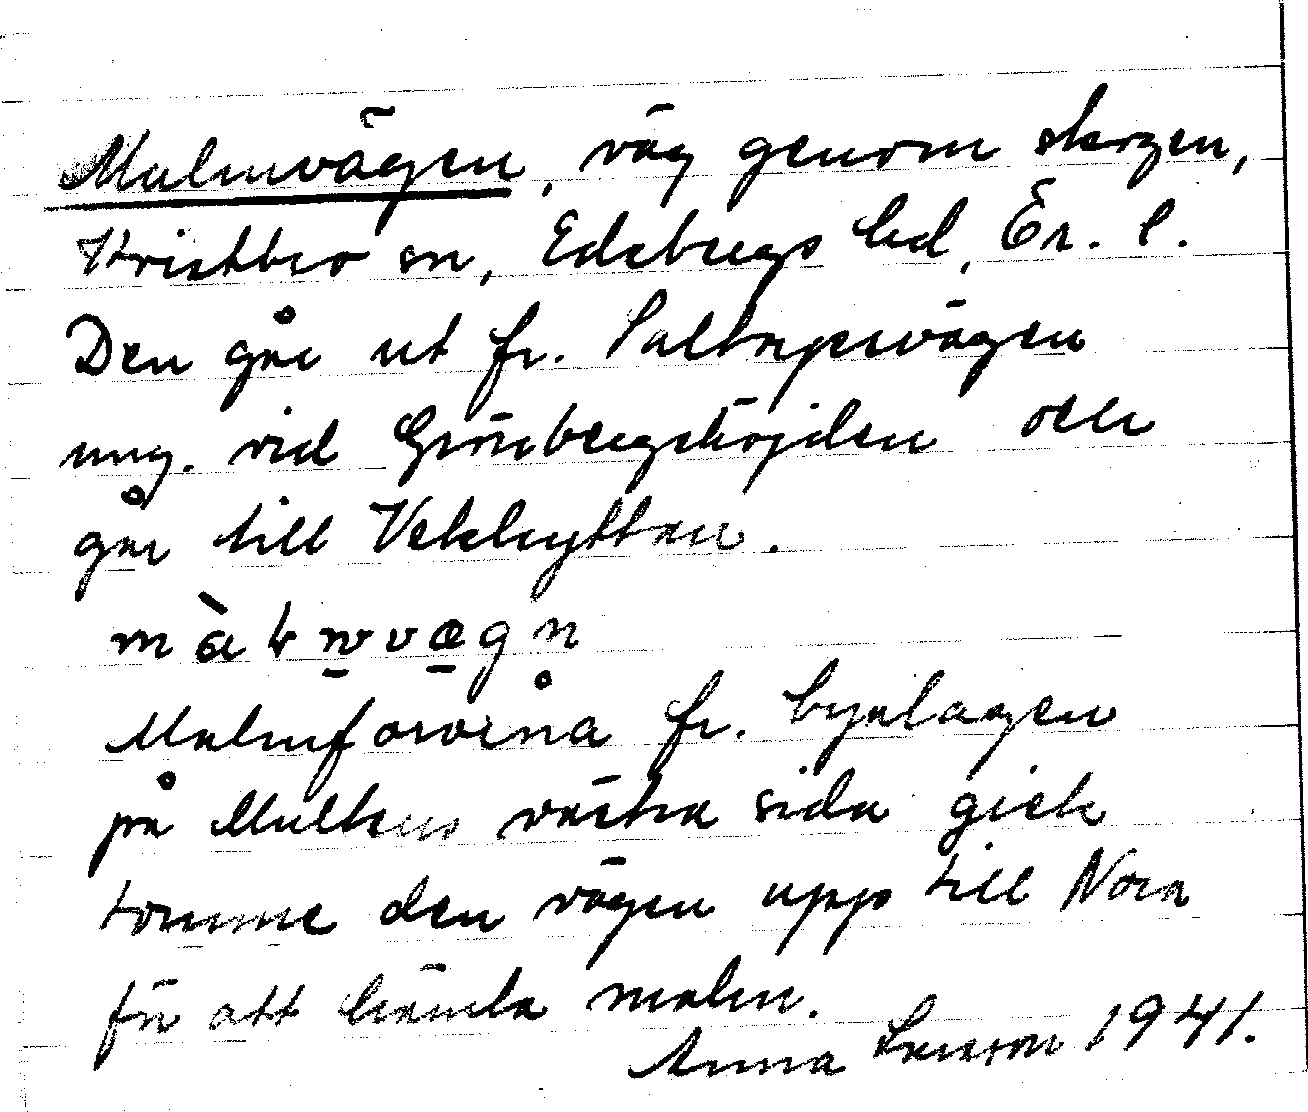 Malmvägen, väg genom skogen,
Kvistbro sn, Edsbergs hd, Ör. l.
Den går ut fr. Saltsjevägen
ung. vid Grönbergshöjden och
går till Vekhyttan.
Malmfororna fr. byalagen
på Multens västra sida gick
tomme den vägen upp till Nora
för att hämta malm.
Anna Larsson 1941.